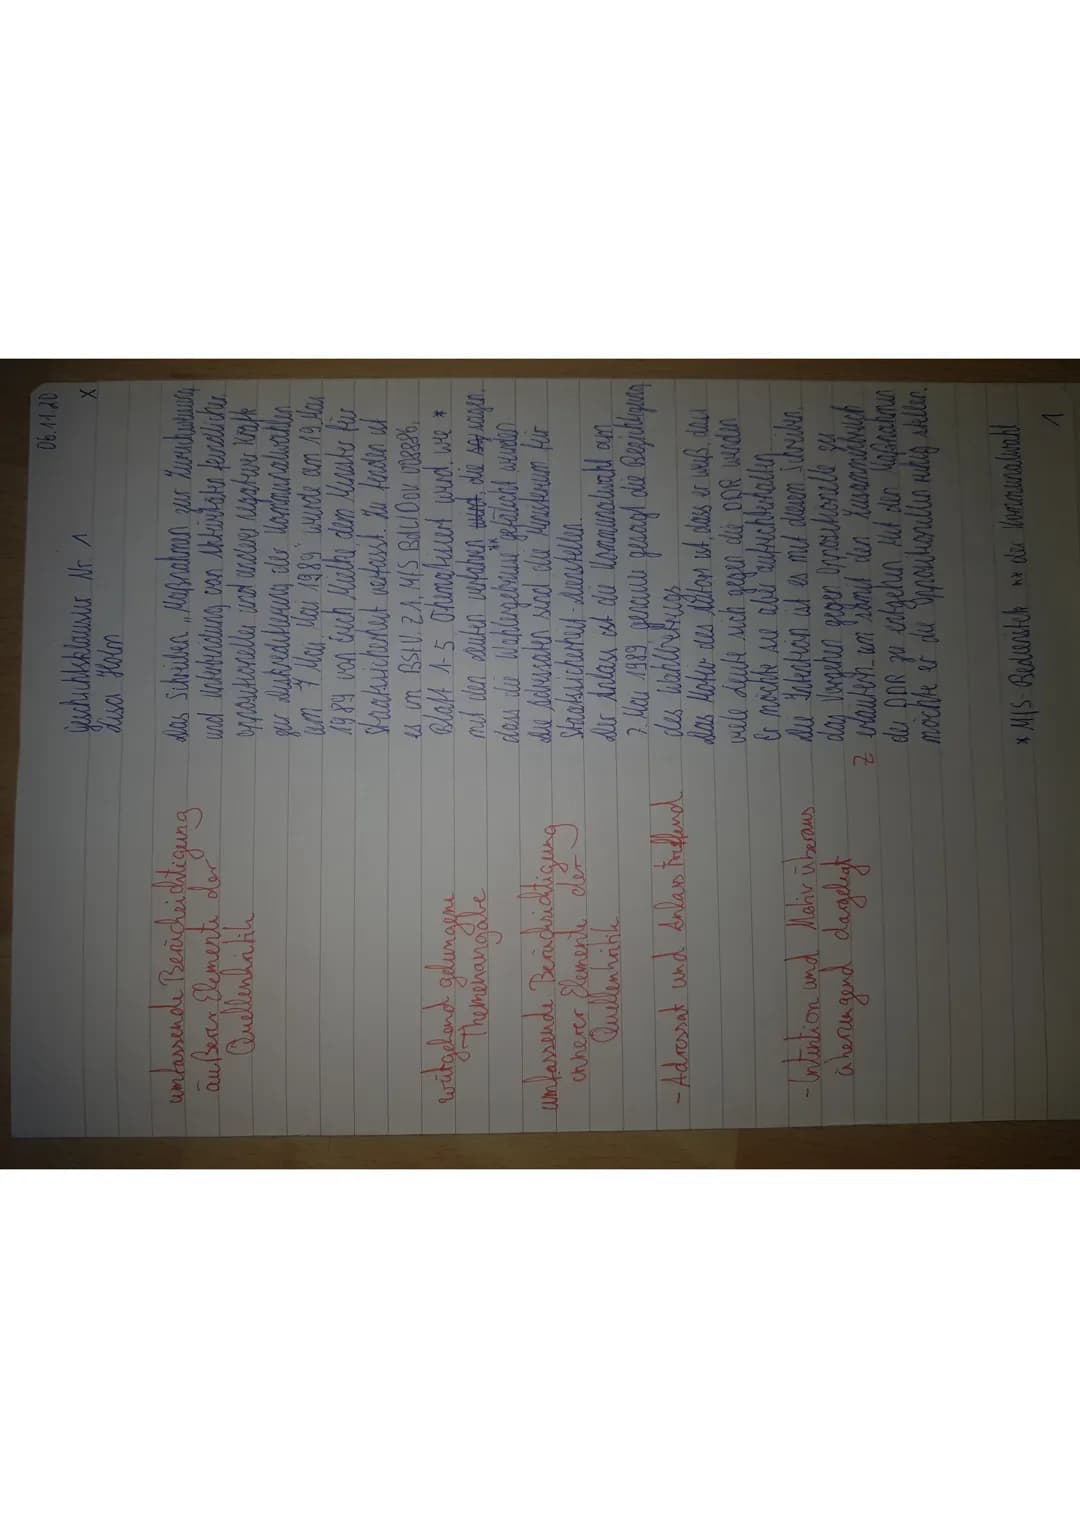 06.11.20
Geschichtsklausur Nr. 1
X
Das Schreiben „Maßnahmen zur Zurückweisung
und Unterbindung von Aktivitäten feindlicher
oppositioneller und anderer negativer Kräfte
zur Diskreditierung der Kommunalwahlen
am 7. Mai 1989" wurde am 19. Mai
1989 von Erich Mielke dem Minister für
Staatssicherheit verfasst. Zu finden ist
es im BStU. ZA. MfS BdL/Dok 008886,
Blatt 1-5. Thematisiert wird wie *
mit den Leuten verfahren, die
dass die Wahlergebnisse ** gefälscht werden.
Die Adressaten sind die Ministerium für
Staatssicherheit
Der Anlass ist die Kommunalwahl am
7. Mai 1989 genauer gesagt die Bezichtigung
des Wahlbetrugs.
Das Motiv des Autors ist, dass er weiß, das
viele Leute sich gegen die DDR wenden
Er möchte sie aber aufrechterhalten.
Die Intention ist es mit diesem Schreiben
das Vorgehen gegen Oppositionelle zu
erläutern um somit den Zusammenbruch
der DDR zu entgehen. Mit den Maßnahmen
möchte er die Oppositionellen ruhig stellen.
* MfS-Bedienstete ** der Kommunalwahl
1
umfassende Berücksichtigung
äußerer Elemente der
Quellenkritik
weitgehend gelungene
Themenangabe
umfassende Berücksichtigung
innerer Elemente der
Quellenkritik
- Adressat und Anlass treffend
- Intention und Motiv überaus
überzeugend dargelegt
Z